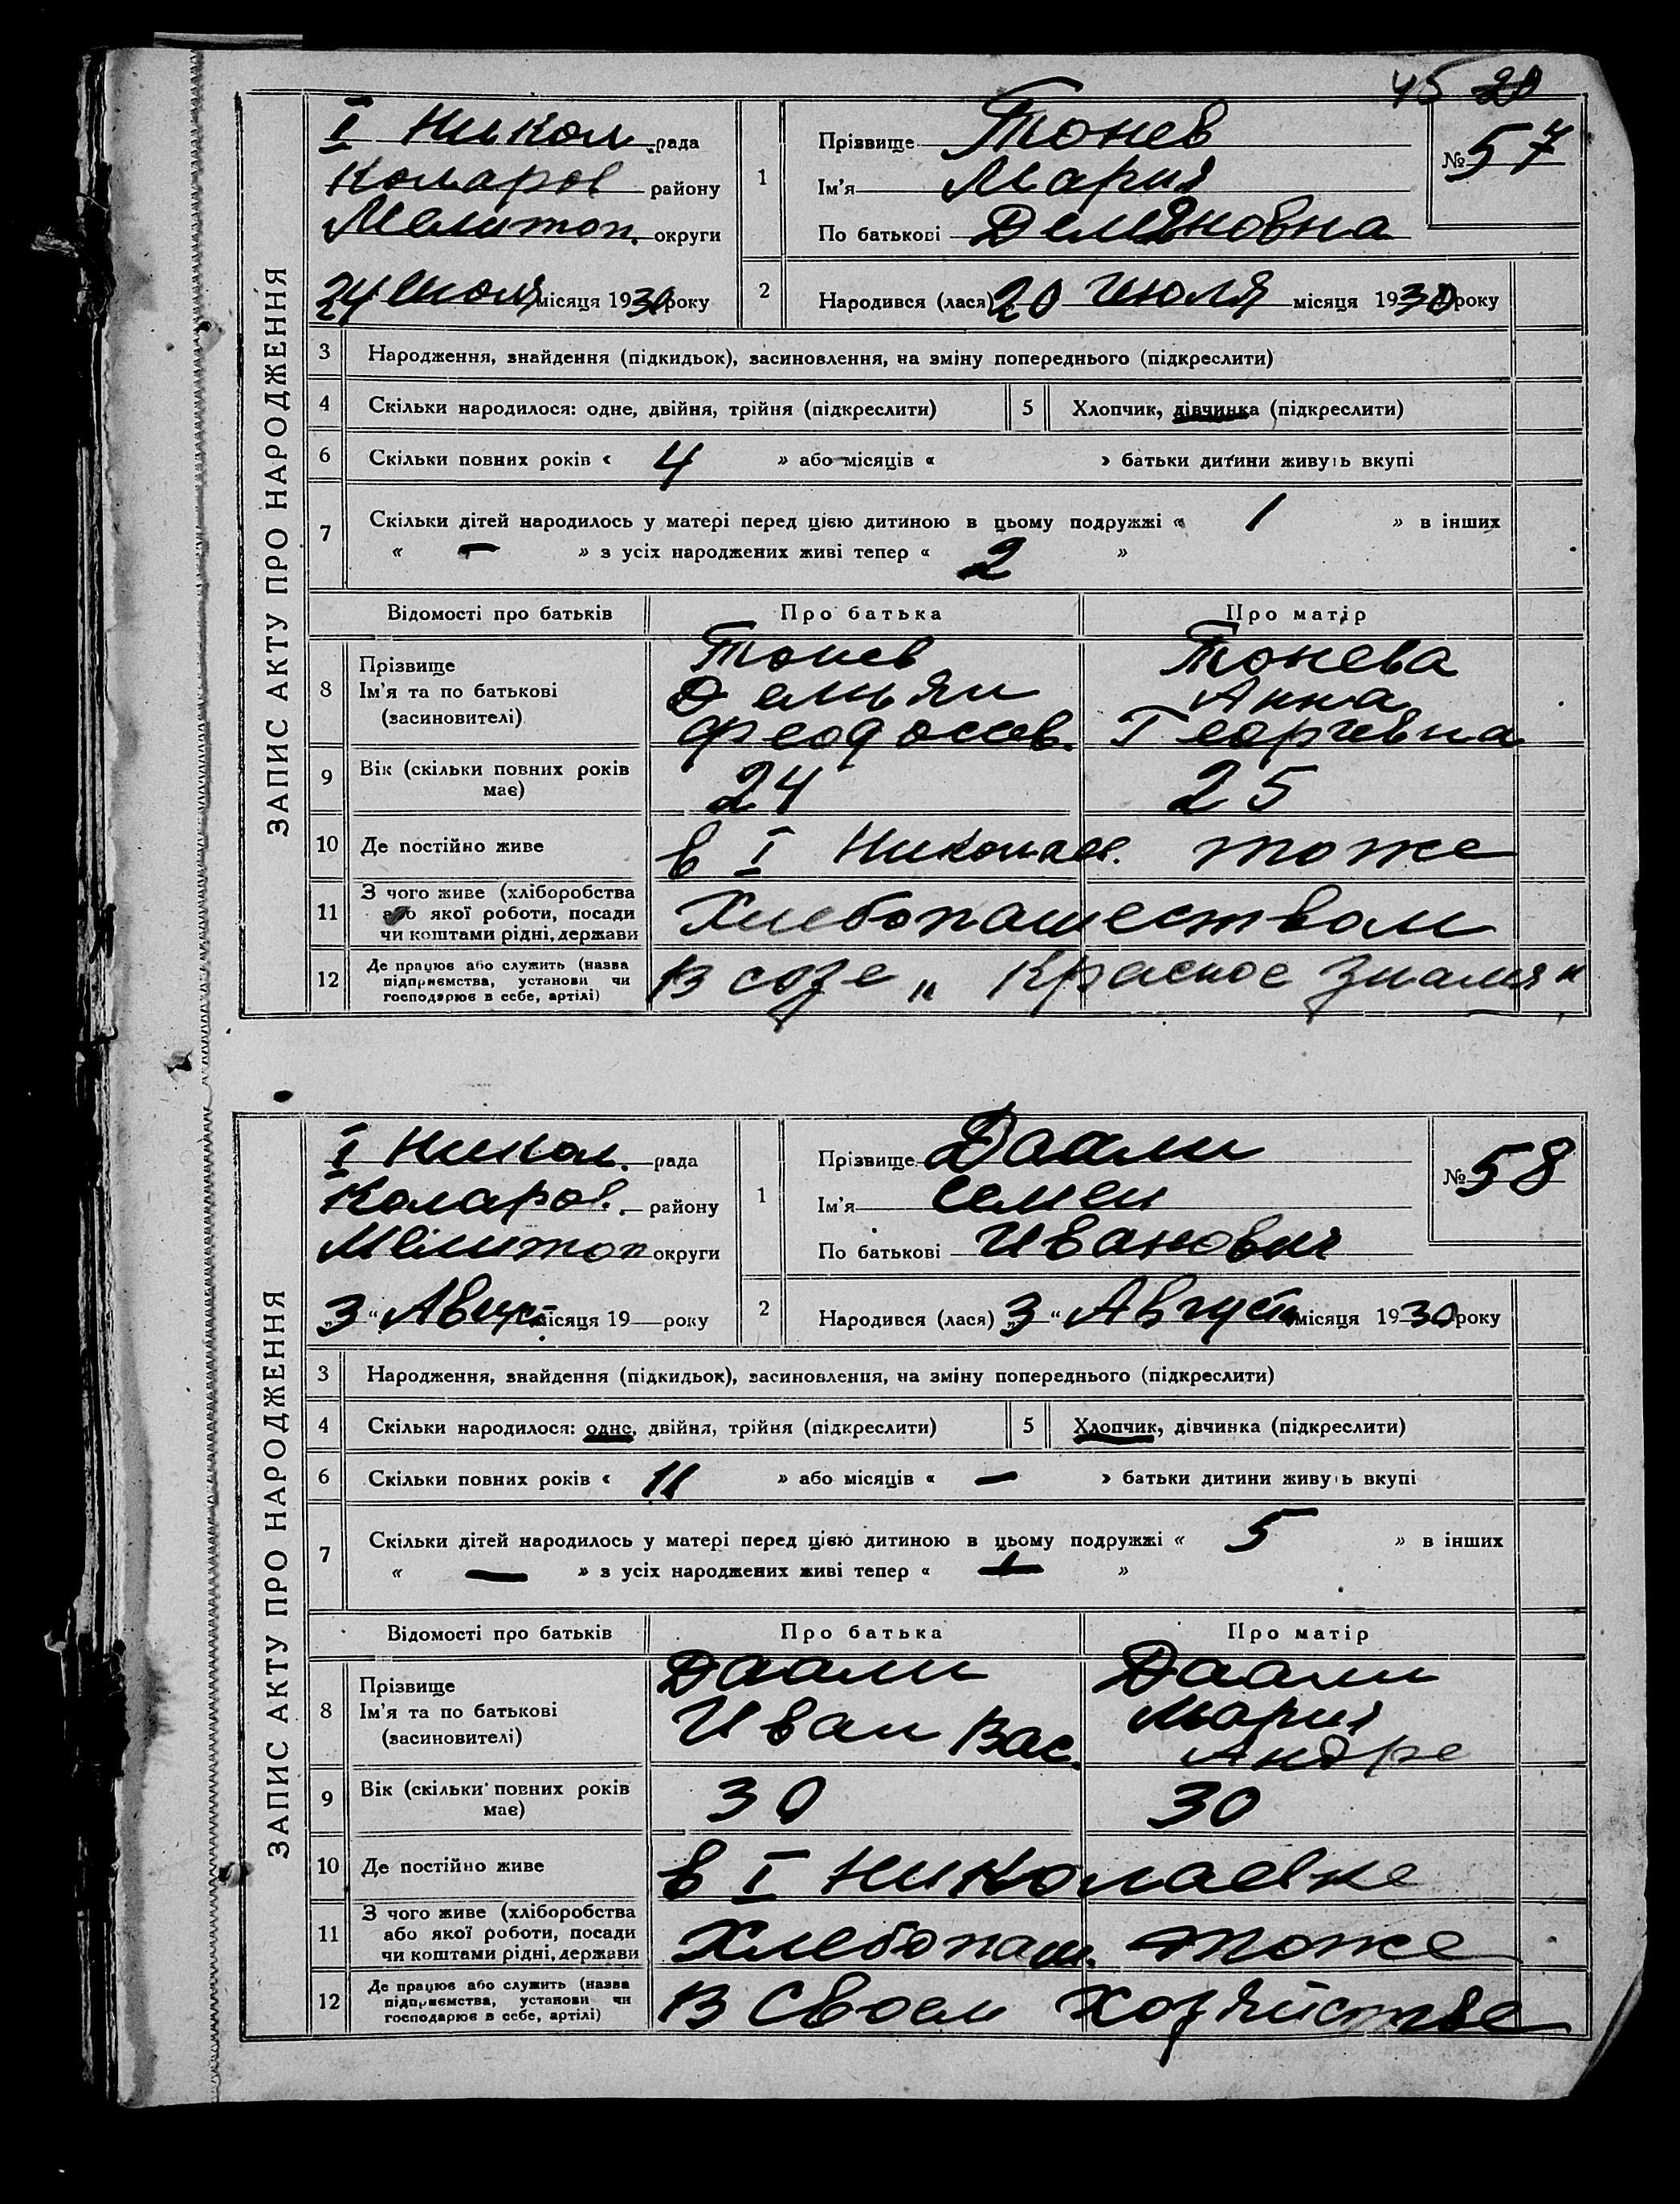 45 20
ЗАПИС АКТУ ПРО НАРОДЖЕННЯ
I Никол. рада
Коларов району
Мелитоп. округи
24 Июля місяця 1930 року
1
Прізвище Тонев
Ім'я Мария
По батькові Демяновна
№ 57
2
Народився (лася) 20 Июля місяця 1930 року
3 Народження, знайдення (підкидьок), засиновлення, на зміну попереднього (підкреслити)
4 Скільки народилося: одне, двійня, трійня (підкреслити) 5 Хлопчик, дівчинка (підкреслити)
6 Скільки повних років « 4 » або місяців « » батьки дитини живуть вкупі
7 Скільки дітей народилось у матері перед цією дитиною в цьому подружжі « 1 » в інших
« — » з усіх народжених живі тепер « 2 »
Відомості про батьків Про батька Про матір
8 Прізвище Тонев Тонева
Ім'я та по батькові Демьян Анна
(засиновителі) Феодосев. Георгевна
9 Вік (скільки повних років має) 24 25
10 Де постійно живе в I Николаев. тоже
11 З чого живе (хліборобства або якої роботи, посади чи коштами рідні, держави Хлебопашеством
12 Де працює або служить (назва підприємства, установи чи господарює в себе, артілі) В созе „Красное Знамя"
ЗАПИС АКТУ ПРО НАРОДЖЕННЯ
I Никол. рада
Коларов. району
Мелитоп округи
„3" Август місяця 19 року
1
Прізвище Даали
Ім'я Семен
По батькові Иванович
№ 58
2
Народився (лася) „3" Августа місяця 1930 року
3 Народження, знайдення (підкидьок), засиновлення, на зміну попереднього (підкреслити)
4 Скільки народилося: одне, двійня, трійня (підкреслити) 5 Хлопчик, дівчинка (підкреслити)
6 Скільки повних років « 11 » або місяців « — » батьки дитини живуть вкупі
7 Скільки дітей народилось у матері перед цією дитиною в цьому подружжі « 5 » в інших
« — » з усіх народжених живі тепер « »
Відомості про батьків Про батька Про матір
8 Прізвище Даали Даали
Ім'я та по батькові Иван Вас. Мария
(засиновителі) Андре
9 Вік (скільки повних років має) 30 30
10 Де постійно живе в I Николаевке
11 З чого живе (хліборобства або якої роботи, посади чи коштами рідні, держави Хлебопаш. тоже
12 Де працює або служить (назва підприємства, установи чи господарює в себе, артілі) В Своем Хозяйстве